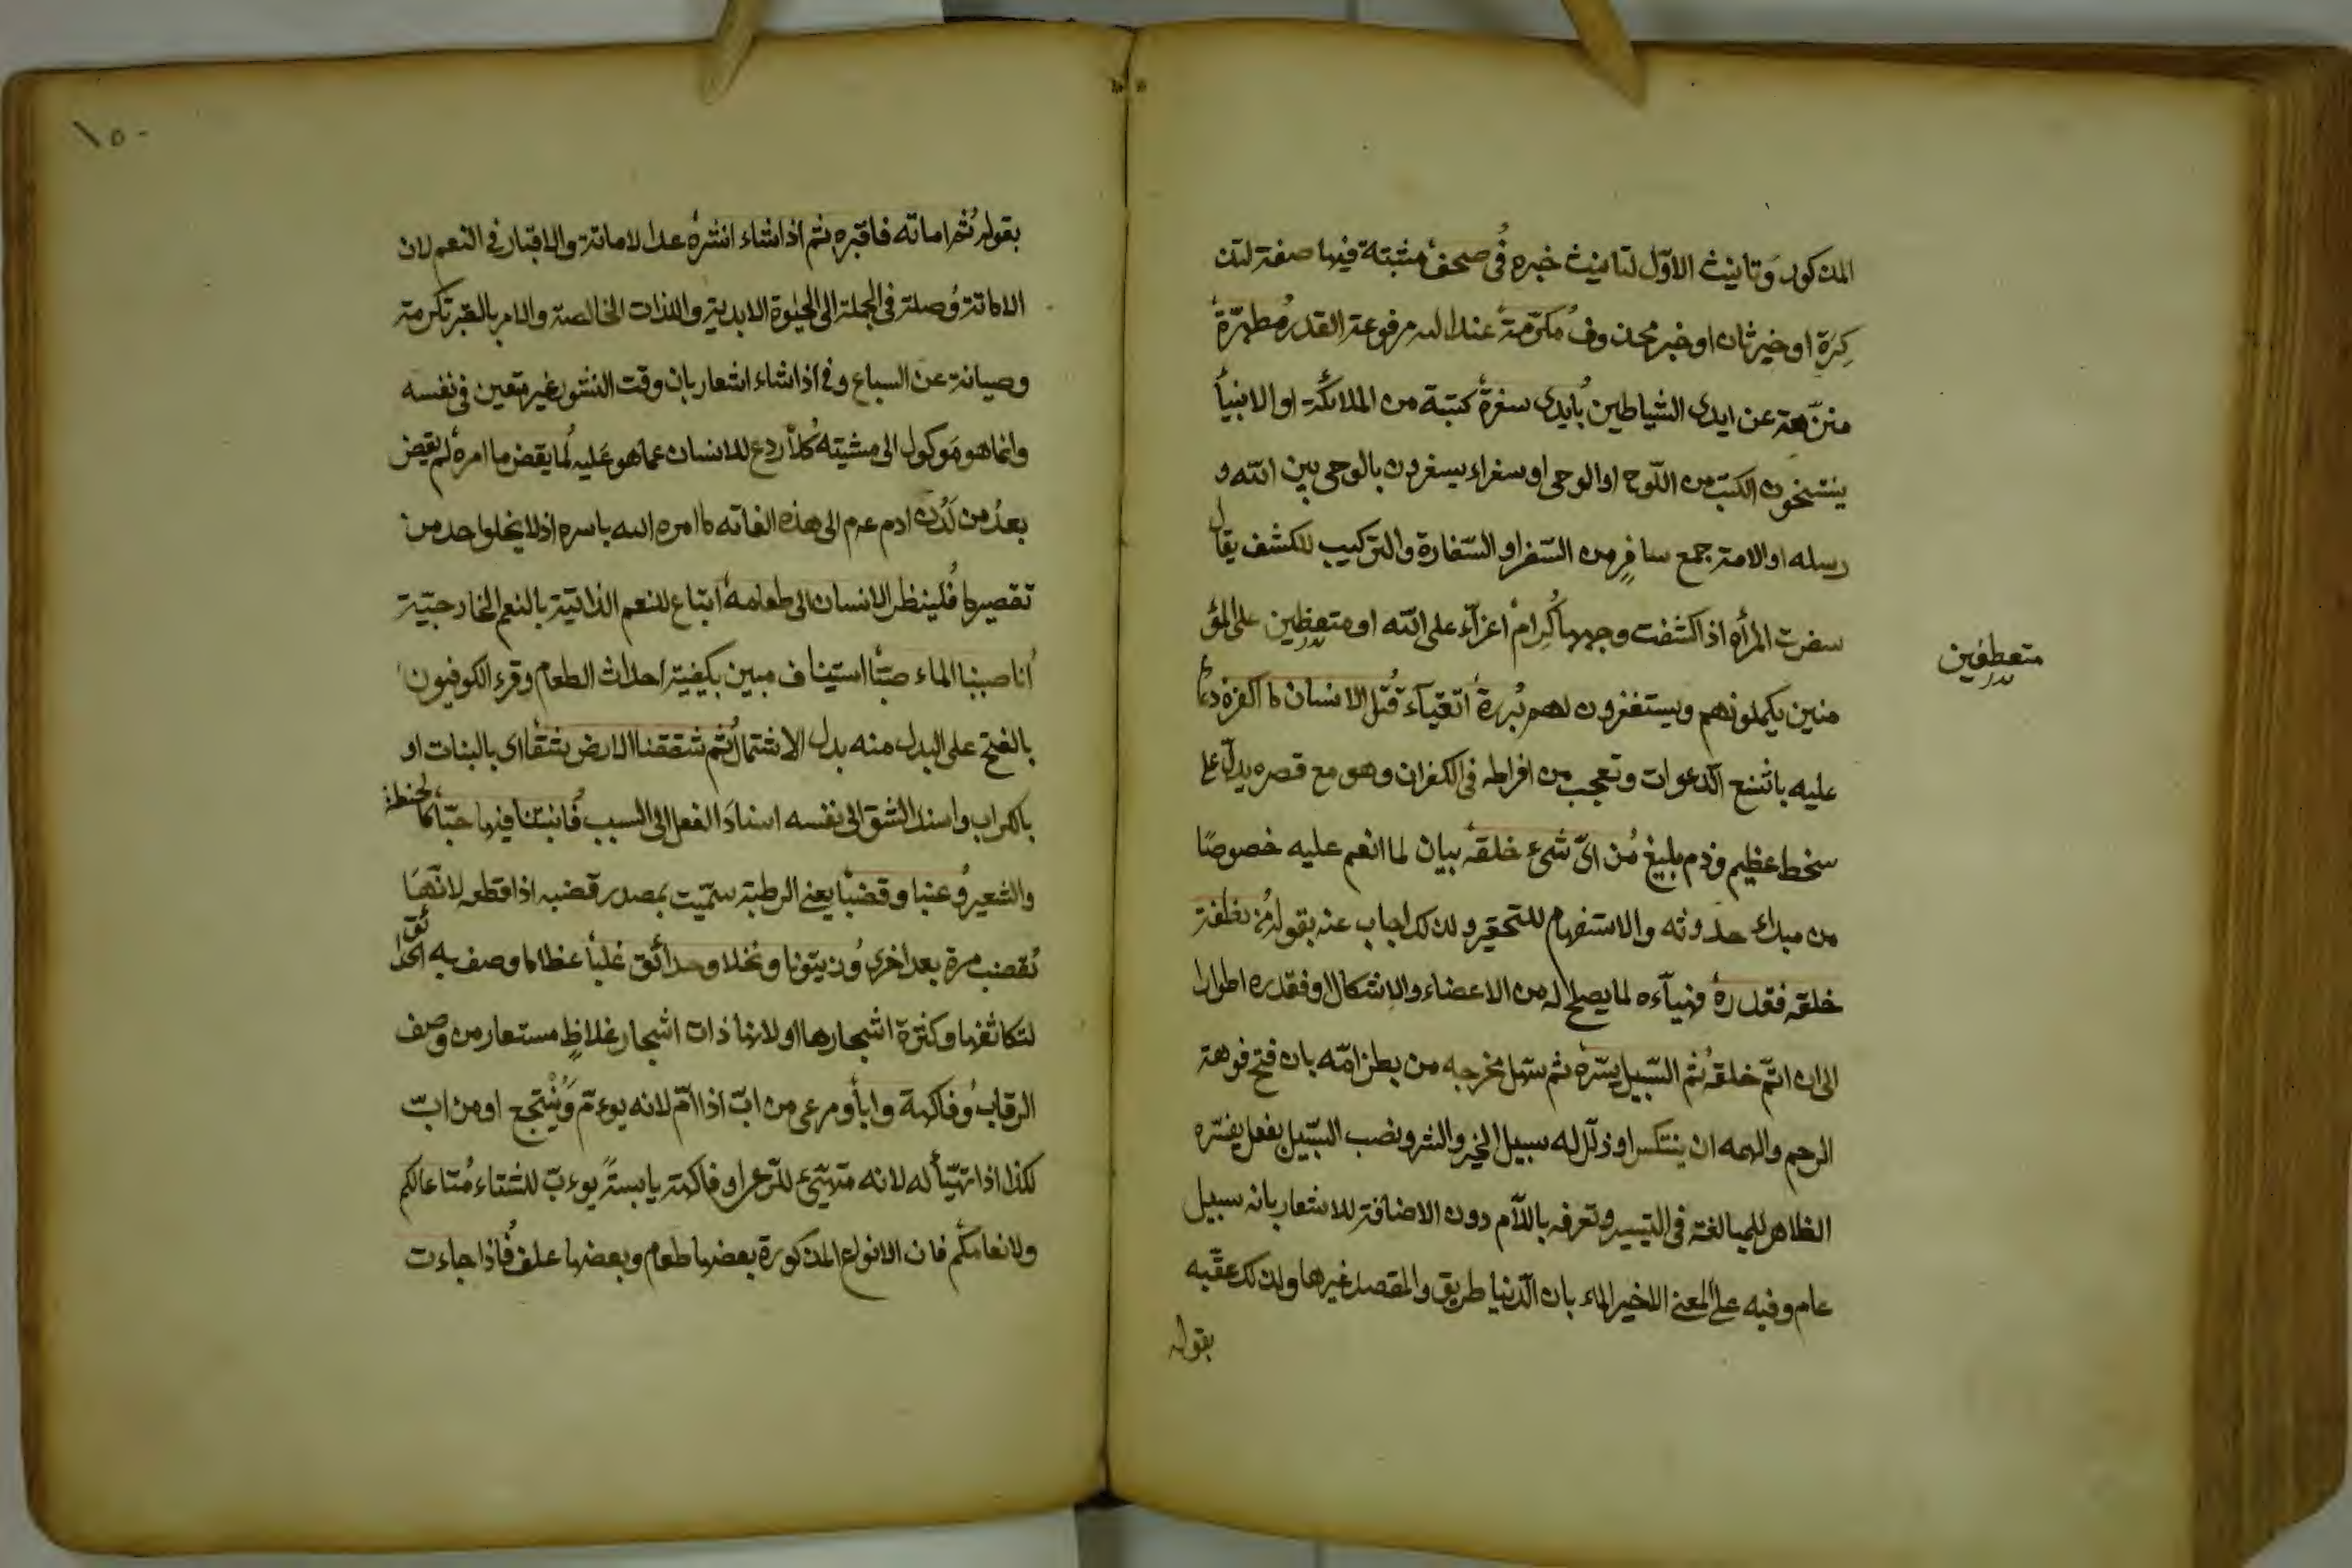 المذكور وتأنيث الاوّل لتانيث خبره فى صحف مثبتة فيها صفة لتذ
كرة او خبر ثان او خبر محذوف مكرّمة عند الله مرفوعة القدر مطهّرة
منزّهة عن ايدى الشياطين بايدى سفرة كتبة من الملائكة او الانبيأ
ينتسخون الكتب من اللّوح او الوحى او سفراء يسفرون بالوحى بين الله و
رسله او الامة جمع سافر من السّفر او السّفارة والتركيب للكشف يقال
سفرت المرأة اذا كشفت وجهها كرام اعزّآء على الله او متعظين على المؤ
متعطفين
منين يكملونهم ويستغفرون لهم بررة اتقيآء قتل الانسان ما اكفره دعا
عليه باشنع الدّعوات وتعجب من افراطه فى الكفران وهو مع قصره يدلّ على
سخط عظيم وذم بليغ من اىّ شىء خلقه بيان لما انعم عليه خصوصًا
من مبدأ حدوثه والاستفهام للتحقير ولذلك اجاب عنه بقوله من نطفة
خلقه فقدره فهيآءه لما يصلح له من الاعضاء والاشكال او فقدره اطوارا
الى ان اتمّ خلقه ثم السّبيل يسّره ثم سهّل مخرجه من بطن امّه بان فتح فوهة
الرحم والهمه ان ينتكس او ذلّل له سبيل الخير والشر ونصب السّبيل بفعل يفسّره
الظاهر للمبالغة فى التيسير وتعرفه باللاّم دون الاضافة للاشعار بانه سبيل
عام وفيه على المعنى الاخير الماء بان الدّنيا طريق والمقصد غيرها ولذلك عقّبه
بقوله
١٥٠
بقوله ثم اماته فاقبره ثم اذا شاء انشره عدا لاماتة والاقبار فى النعم لان
الاماتة وصلة فى الجملة الى الحيٰوة الابدية واللذات الخالصة والامر بالقبر تكرمة
وصيانة عن السباع وفى اذا شاء اشعار بان وقت النشور غير متعين فى نفسه
وانما هو موكول الى مشيته كلاّ ردع للانسان عما هو عليه لما يقض ما امره لم يقض
بعد من لدن ادم عم الى هذه الغاته ما امره الله باسره اذ لا يخلوا حد من
تقصير ما فلينظر الانسان الى طعامه اتباع للنعم الذاتيّة بالنعم الخارجيّة
انا صببنا الماء صبّا استيناف مبين بكيفية احداث الطعام وقرء الكوفيون
بالفتح على البدل منه بدل الاشتمال ثم شققنا الارض شقا اى بالنبات او
بالكراب واسند الشق الى نفسه اسناد الفعل الى السبب فانبتنا فيها حبّا كالحنطة
والشعير وعنبا وقضبا يعنى الرطبة سمّيت بمصدر قضبه اذا قطعه لانّها
تقضب مرة بعد اخرى وزيتونا ونخلا وحدائق غلبا عظاما وصف به الحدائق
لتكاثفها وكثرة اشجارها او لانها ذات اشجار غلاظٍ مستعار من وصف
الرقاب وفاكهة وابا ومرعى من ابّ اذا امّ لانه يوءمّ وينتجع او من ابّ
لكذا اذا تهيّأ له لانه متهيّئ للرّعى او فاكهة يابسة يوءبّ للشتاء متاعا لكم
ولانعامكم فان الانواع المذكورة بعضها طعام وبعضها علف فاذا جاءت